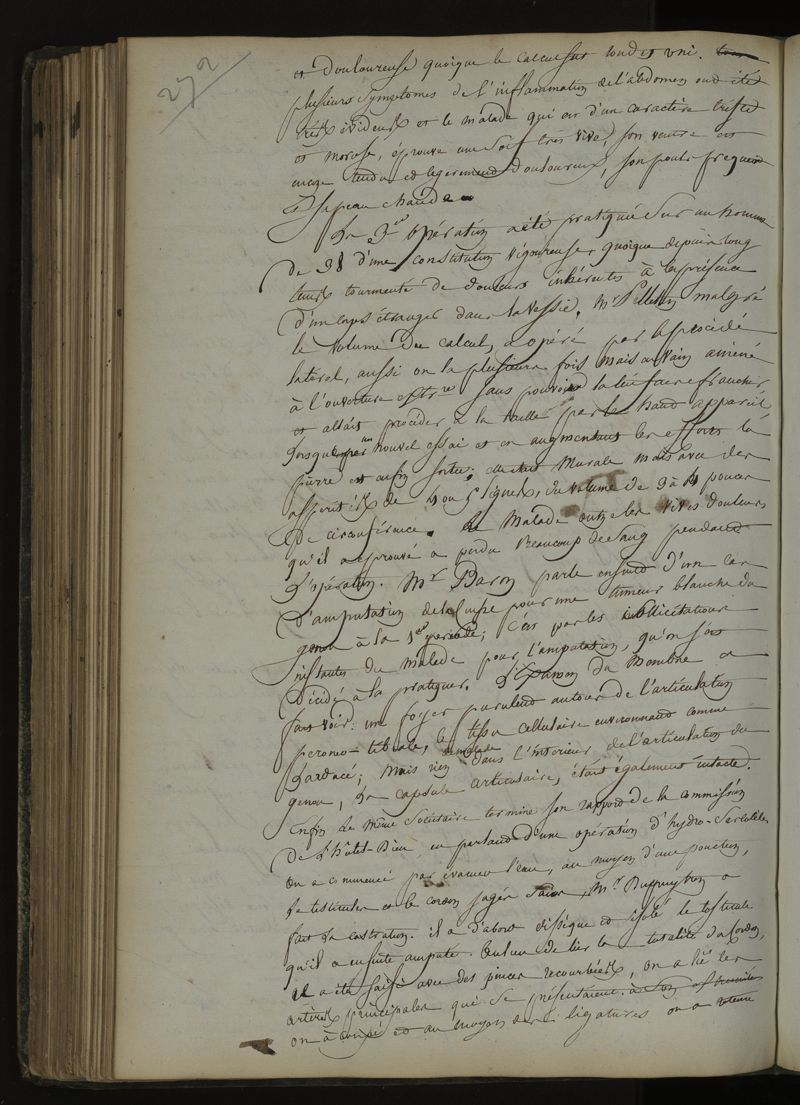 272
et douloureuse quoique le calcul fut rond et uni.
plusieurs symptomes de l'inflammation de l'abdomen ont été
très évidents et le malade qui est d'un caractère triste
et morose, éprouve une soif très vive, son ventre est
encore tendu et légèrement douloureux, son pouls fréquent
et sa peau chaude.
La 3me opération a été pratiquée sur un homme
de 38 d'une constitution vigoureuse, quoique depuis long
tems tourmenté de douleurs inhérentes à la présence
d'un corps étranger dans la vessie. Mr Pelletan malgré
le volume du calcul, a opéré par le procédé
lateral, aussi on l'a plusieurs fois mais en vain amené
à l'ouverture extre sans pouvoir la lui faire franchir
et allait procéder à la taille par le haut appareil
lorsque par un nouvel essai et en augmentant les efforts la
pierre est enfin sortie; murale mais avec des
asperités de 4 ou 5 lignes, du volume de 3 à 4 pouces
de circonférence. Le Malade outre les vives douleurs
qu'il a éprouvé a perdu beaucoup de sang pendant
l'opération. Mr Baron parle ensuite d'un cas
d'amputation de la Cuisse pour une tumeur blanche du
genou à la 1ere période; c'est par les sollicitations
instantes du malade pour l'amputation, qu'on s'est
décidé à la pratiquer. L'Examen du Membre a
fait voir un foyer purulent autour de l'articulation
peroneo-tibiale, le tissu cellulaire environnant comme
lardacé; mais rien dans l'interieur de l'articulation du
genou, la capsule articulaire, étant également intacte.
Enfin le même Secretaire termine son rapport de la commission
de l'hôtel-Dieu en parlant d'une opération d'hydro-Sarcocèle.
On a commencé par évacuer l'eau, au moyen d'une ponction,
le testicule et le cordon jugés sains, Mr Dupuytren a
fait la castration. il a d'abord disséqué et isolé le testicule
qu'il a ensuite amputé. Au lieu de lier la totalité du Cordon,
il a été saisi avec des pinces recourbées, on a lié les
artères principales qui se présentaient.
on a coupé et au moyen de ligatures on a retenu